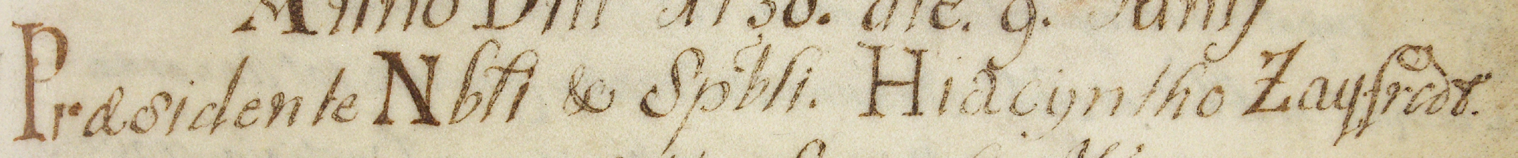 Anno Dni 1730. die. 9. Junij
Præsidente Nbli & Spbli. Hiacyntho